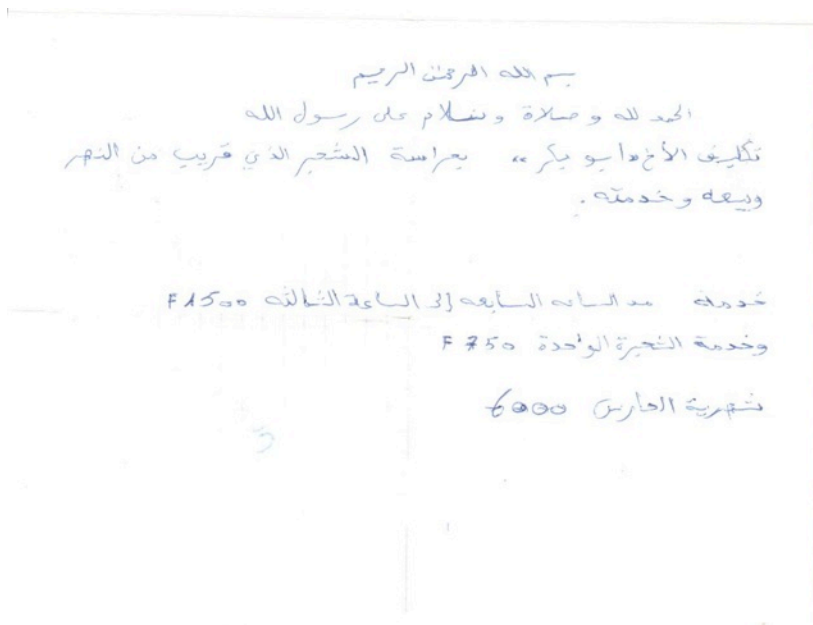 بسم الله الرحمن الرحيم
الحمد لله و صلاة وسلام على رسول الله
تكليف الأخ بحراسة الشجر الذي قريب من النهر
وبيعه وخدمته.
خدمة من الساعة السابعه إلى الساعة الثالثه F 1500
وخدمة الشجرة الواحدة F 750
شهرية الحارس 6000